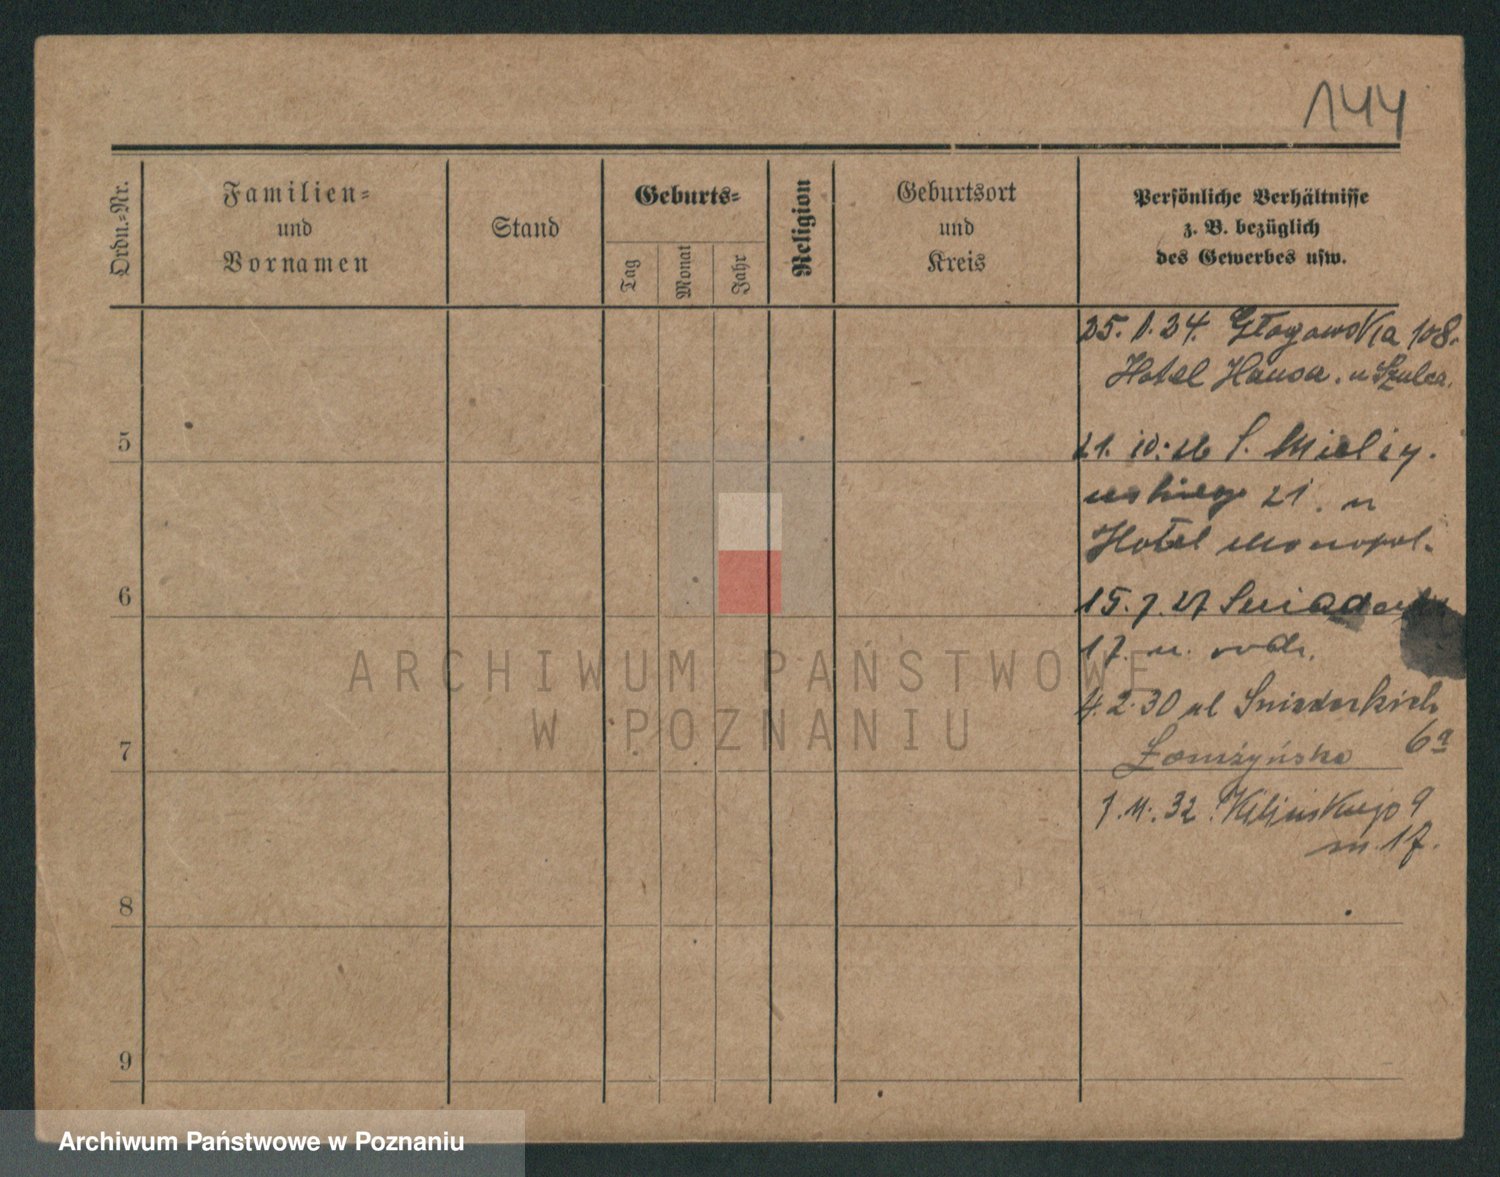 144
Ordn.-Nr.
Familien-
und
Vornamen
Stand
Geburts-
Tag
Monat
Jahr
Religion
Geburtsort
und
Kreis
Persönliche Verhältnisse
z. B. bezüglich
des Gewerbes usw.
Głogowska 108.
Hotel Hansa. u Szulca.
5
21. 10. 26 S. Mielżyń-
skiego 21. u
Hotel Monopol.
6
15. 7. 27 Śniadeckich
17. u rodz.
4. 2. 30 ul Śniadeckich
6a
Łomżyńska
7
1. 11. 32. Kilińskiego 9
m. 17.
8
9
ARCHIWUM PAŃSTWOWE
W POZNANIU
Archiwum Państwowe w Poznaniu